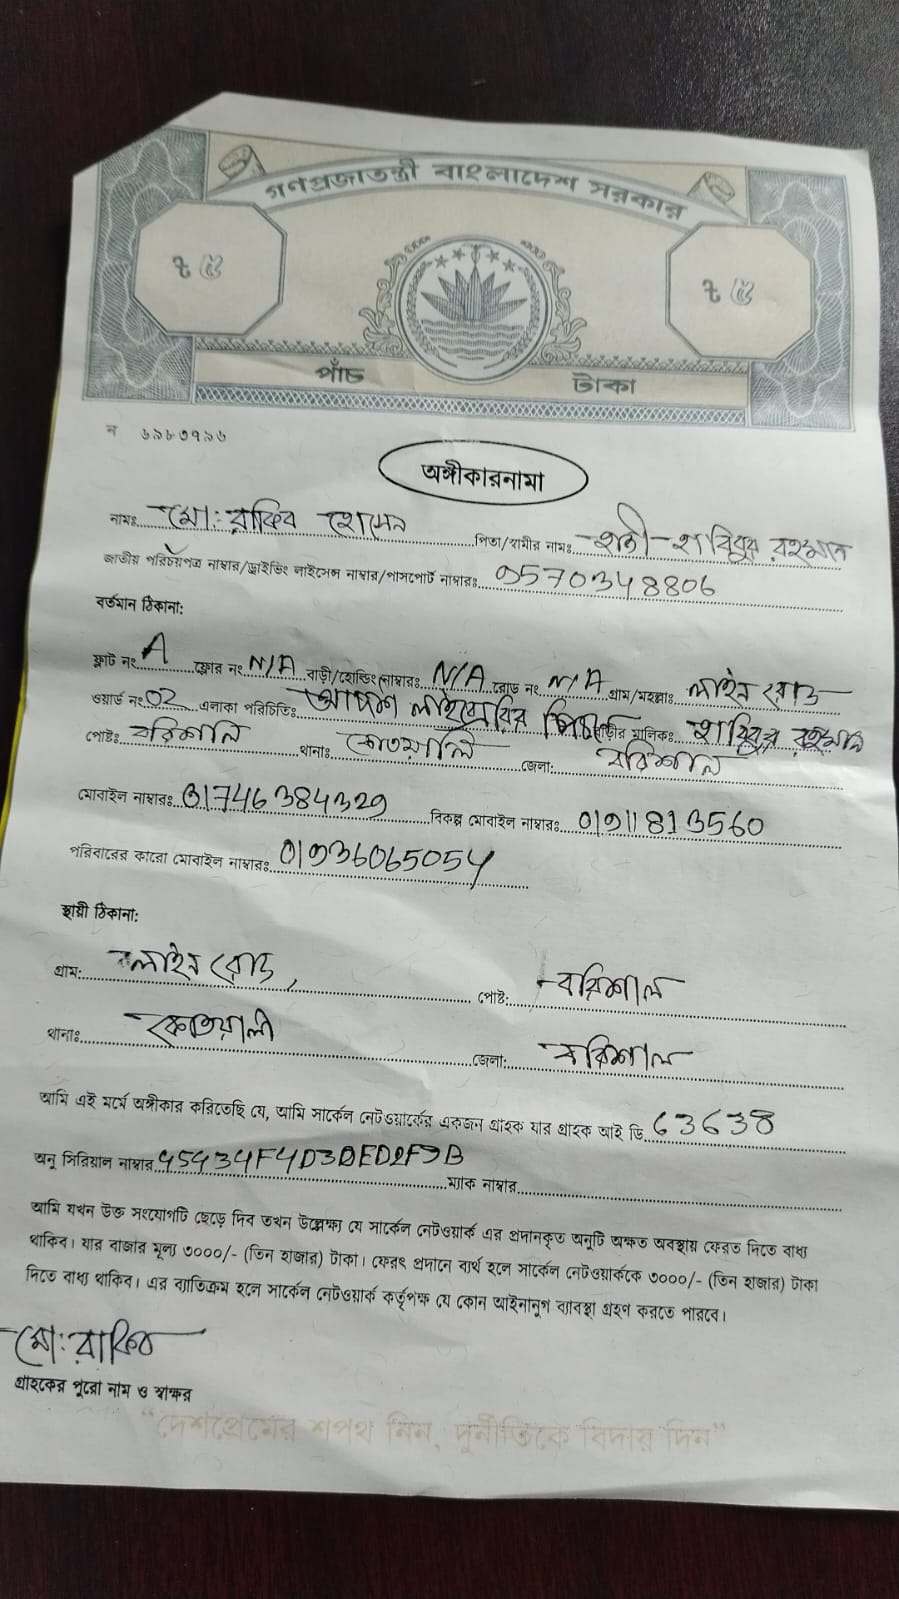 গণপ্রজাতন্ত্রী বাংলাদেশ সরকার
৳ ৫ ৳ ৫
পাঁচ টাকা
ন ৬৯৮৩৭৯৬
অঙ্গীকারনামা
নামঃ মো: রাকিব হোসেন পিতা/স্বামীর নামঃ হাবিবুর রহমান
জাতীয় পরিচয়পত্র নাম্বার/ড্রাইভিং লাইসেন্স নাম্বার/পাসপোর্ট নাম্বারঃ 9570348806
বর্তমান ঠিকানা:
ফ্লাট নং A ফ্লোর নং N/A বাড়ী/হোল্ডিং নাম্বারঃ N/A রোড নং N/A গ্রাম/মহল্লাঃ লাইন রোড
ওয়ার্ড নং 02 এলাকা পরিচিতিঃ আদর্শ লাইব্রেরির মালিকঃ হাবিবুর রহমান
পোষ্টঃ বরিশাল থানাঃ কোতয়ালি জেলা: বরিশাল
মোবাইল নাম্বারঃ 01746384329 বিকল্প মোবাইল নাম্বারঃ 01911813560
পরিবারের কারো মোবাইল নাম্বারঃ 01936065054
স্থায়ী ঠিকানা:
গ্রাম: লাইন রোড, পোষ্ট: বরিশাল
থানাঃ কোতয়ালী জেলা: বরিশাল
আমি এই মর্মে অঙ্গীকার করিতেছি যে, আমি সার্কেল নেটওয়ার্কের একজন গ্রাহক যার গ্রাহক আই ডি 63638
অনু সিরিয়াল নাম্বার ম্যাক নাম্বার
আমি যখন উক্ত সংযোগটি ছেড়ে দিব তখন উল্লেক্ষ্য যে সার্কেল নেটওয়ার্ক এর প্রদানকৃত অনুটি অক্ষত অবস্থায় ফেরত দিতে বাধ্য
থাকিব। যার বাজার মূল্য ৩০০০/- (তিন হাজার) টাকা। ফেরৎ প্রদানে ব্যর্থ হলে সার্কেল নেটওয়ার্ককে ৩০০০/- (তিন হাজার) টাকা
দিতে বাধ্য থাকিব। এর ব্যাতিক্রম হলে সার্কেল নেটওয়ার্ক কর্তৃপক্ষ যে কোন আইনানুগ ব্যাবস্থা গ্রহণ করতে পারবে।
মো: রাকিব
গ্রাহকের পুরো নাম ও স্বাক্ষর
“দেশপ্রেমের শপথ নিন, দুর্নীতিকে বিদায় দিন”